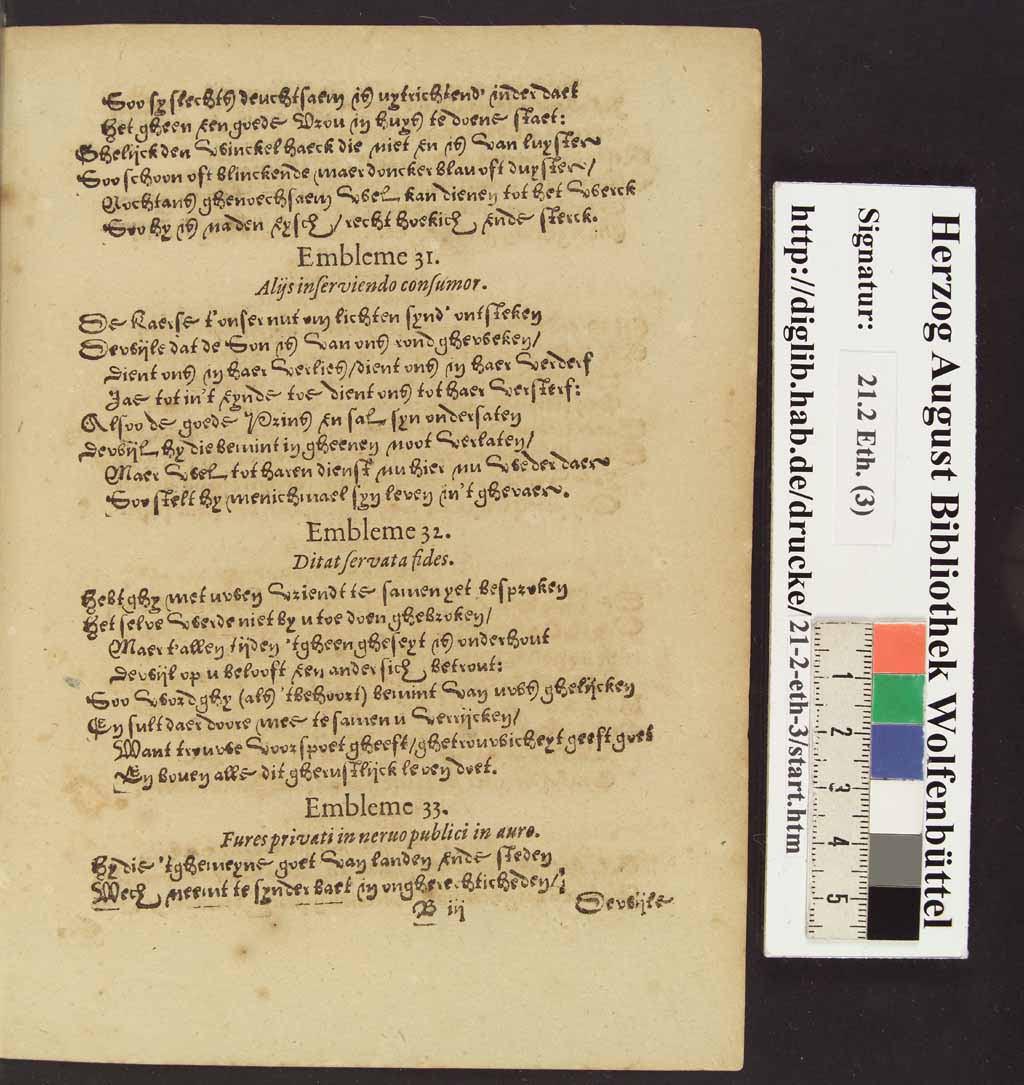 Soo sy slechts deuchtsaem is uytrichtend' inder daet
Het gheen een goede Vrou in huys te doene staet:
Ghelijck den Winckelhaeck die niet en is van luyster
Soo schoon oft blinckende, maer doncker blau oft duyster/
Nochtans ghenoechsaem wel kan dienen tot het werck
Soo hy is na den eysch / recht hoekich ende sterck.
Embleme 31.
Alijs inserviendo consumor.
De Kaerse t'onser nut om lichten synd' ontsteken
Dewijle dat de Son is van ons rond gheweken/
Dient ons in haer verlies/dient ons in haer verderf
Jae tot in't eynde toe dient ons tot haer versterf:
Alsoo de goede Prins en sal syn ondersaten
Dewijl hy die bemint in gheenen noot verlaten/
Maer wel tot haren dienst nu hier nu weder daer
Soo stelt hy menichmael syn leven in't ghevaer.
Embleme 32.
Ditat servata fides.
Hebt ghy met uwen vriendt te samen yet besproken
Het selve werde niet by u toe doen ghebroken/
Maer t'allen tijden 'tgheen gheseyt is onderhout
Dewijl op u belooft een ander sich betrout:
Soo word ghy (als 'tbehoort) bemint van uws ghelijcken
En sult daer doore mee te samen u verrijcken/
Want trouwe voorspoet gheeft/ghetrouwicheyt geeft goet
En boven alle dit gherustlijck leven doet.
Embleme 33.
Fures privati in nervo publici in auro.
Hy die 'tghemeyne goet van landen ende steden
Wech neemt te synder baet in ongherechticheden/
B iij
Dewijle
Herzog August Bibliothek Wolfenbüttel
Signatur: 21.2 Eth. (3)
http://diglib.hab.de/drucke/21-2-eth-3/start.htm
1
2
3
4
5